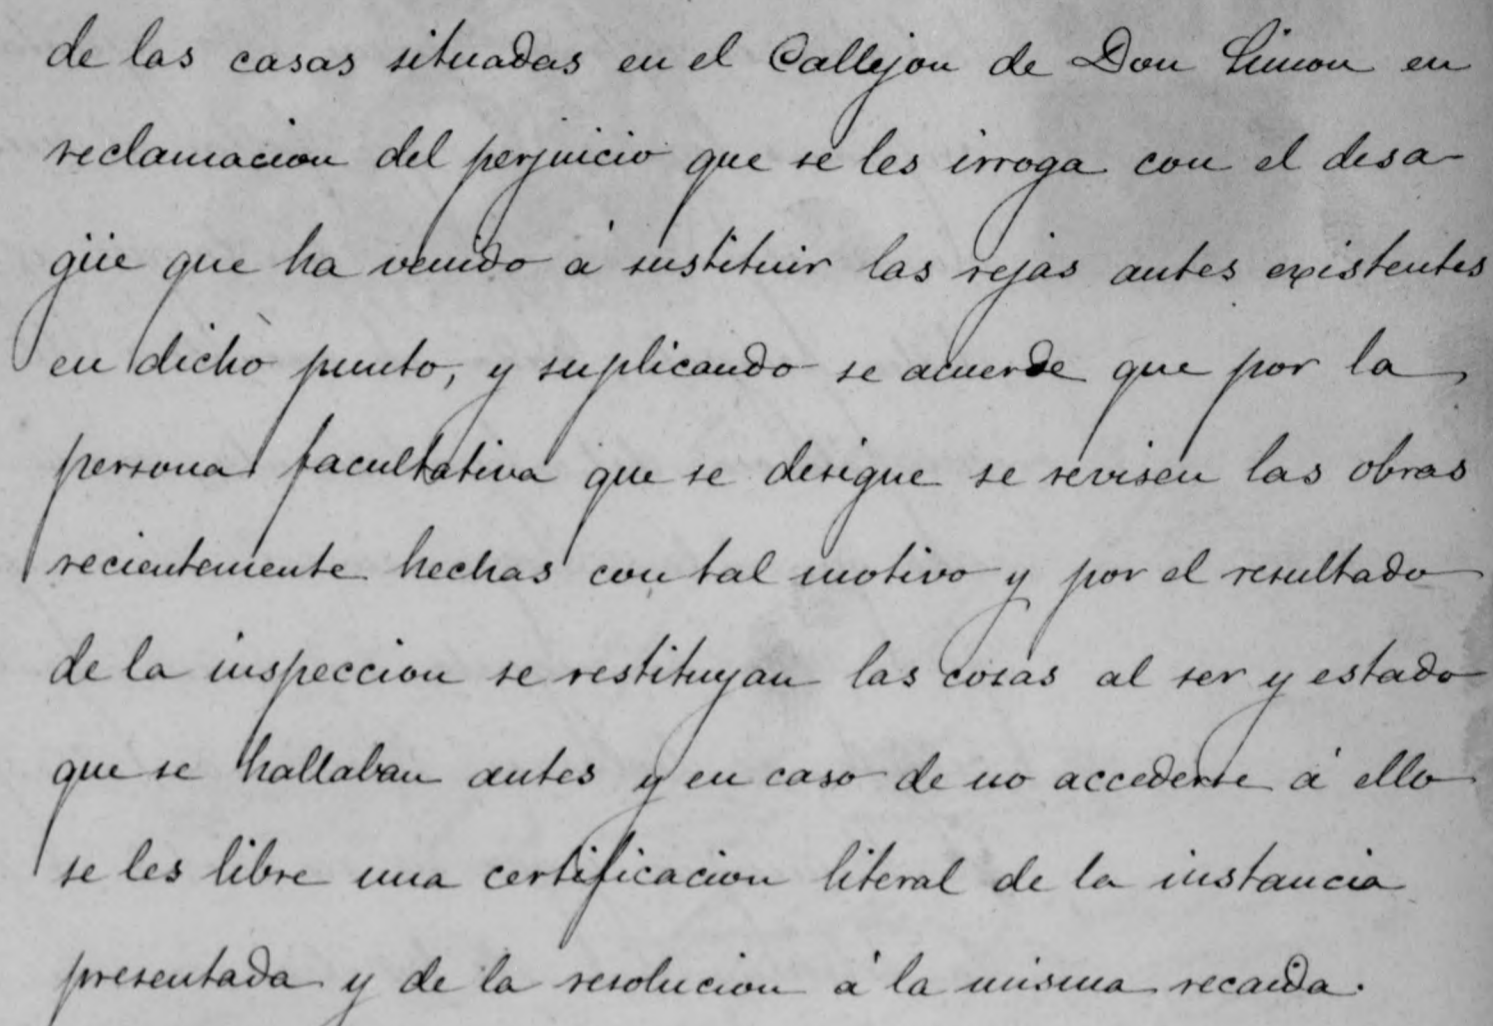 de las casas situadas en el Callejon de Don Simon en
reclamacion del perjuicio que se les irroga con el desa-
güe que ha venido á sustituir las rejas antes existentes
en dicho punto, y suplicando se acuerde que por la
persona facultativa que se designe se revisen las obras
recientemente hechas con tal motivo y por el resultado
de la inspeccion se restituyan las cosas al ser y estado
que se hallaban antes y en caso de no accederse á ello
se les libre una certificacion literal de la instancia
presentada y de la resolucion á la misma recaida.